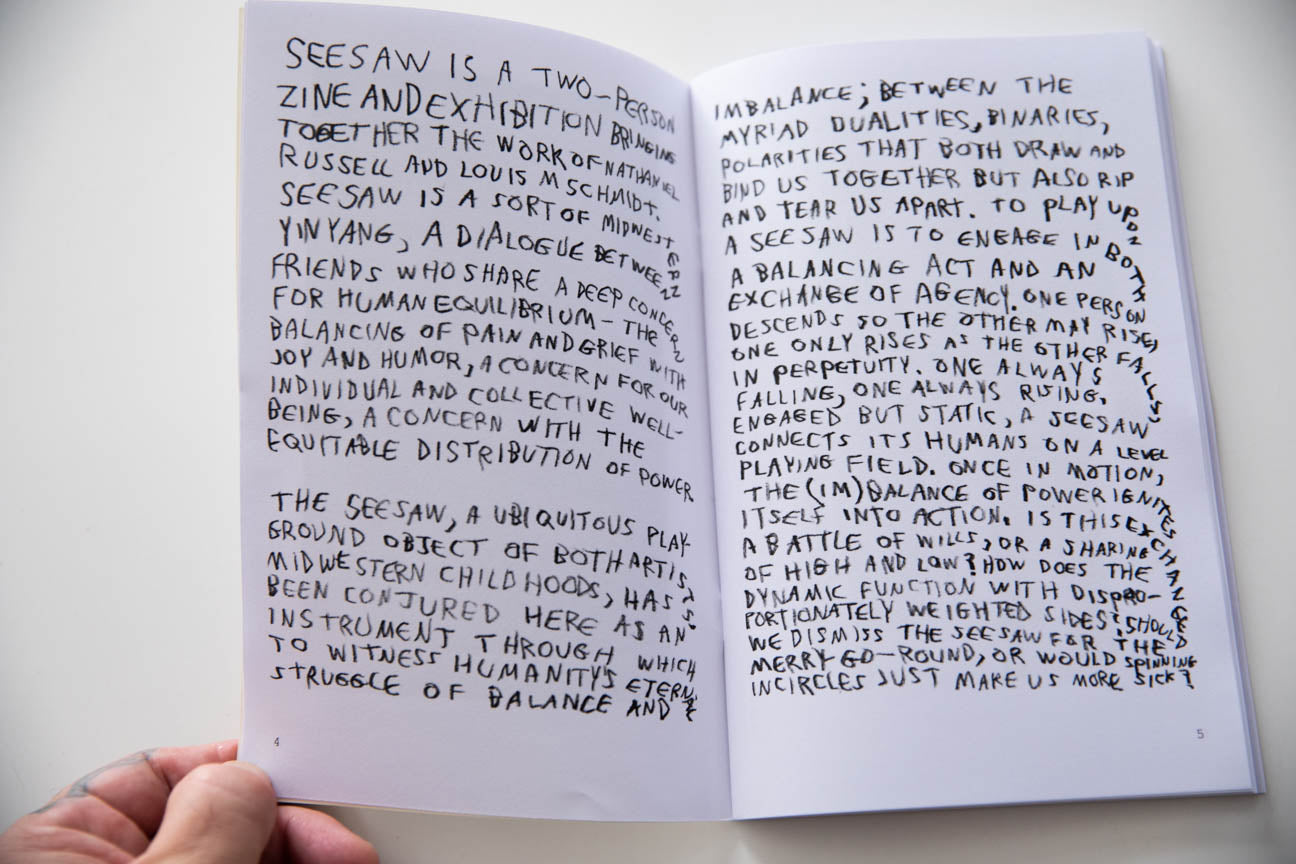 SEESAW IS A TWO-PERSON
ZINE AND EXHIBITION BRINGING
TOGETHER THE WORK OF NATHANIEL
RUSSELL AND LOUIS M SCHMIDT.
SEESAW IS A SORT OF MIDWESTERN
YIN YANG, A DIALOGUE BETWEEN
FRIENDS WHO SHARE A DEEP CONCERN
FOR HUMAN EQUILIBRIUM - THE
BALANCING OF PAIN AND GRIEF WITH
JOY AND HUMOR, A CONCERN FOR OUR
INDIVIDUAL AND COLLECTIVE WELL-
BEING, A CONCERN WITH THE
EQUITABLE DISTRIBUTION OF POWER
THE SEESAW, A UBIQUITOUS PLAY-
GROUND OBJECT OF BOTH ARTISTS'
MIDWESTERN CHILDHOODS, HAS
BEEN CONJURED HERE AS AN
INSTRUMENT THROUGH WHICH
TO WITNESS HUMANITY'S ETERNAL
STRUGGLE OF BALANCE AND
4
IMBALANCE; BETWEEN THE
MYRIAD DUALITIES, BINARIES,
POLARITIES THAT BOTH DRAW AND
BIND US TOGETHER BUT ALSO RIP
AND TEAR US APART. TO PLAY UPON
A SEESAW IS TO ENGAGE IN BOTH
A BALANCING ACT AND AN
EXCHANGE OF AGENCY. ONE PERSON
DESCENDS SO THE OTHER MAY RISE,
ONE ONLY RISES AS THE OTHER FALLS,
IN PERPETUITY. ONE ALWAYS
FALLING, ONE ALWAYS RISING.
ENGAGED BUT STATIC, A SEESAW
CONNECTS ITS HUMANS ON A LEVEL
PLAYING FIELD. ONCE IN MOTION,
THE (IM)BALANCE OF POWER IGNITES
ITSELF INTO ACTION. IS THIS EXCHANGE
A BATTLE OF WILLS, OR A SHARING
OF HIGH AND LOW? HOW DOES THE
DYNAMIC FUNCTION WITH DISPRO-
PORTIONATELY WEIGHTED SIDES? SHOULD
WE DISMISS THE SEESAW FOR THE
MERRY-GO-ROUND, OR WOULD SPINNING
IN CIRCLES JUST MAKE US MORE SICK?
5